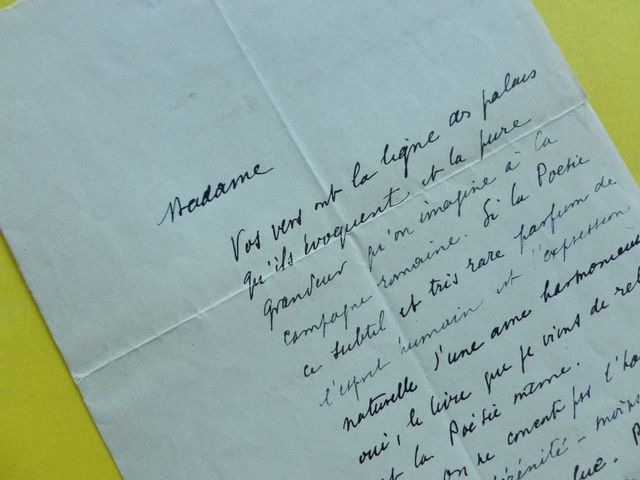 Madame
Vos vers ont la ligne des palais
qu'ils évoquent et la pure
grandeur qu'on imagine à la
campagne romaine. Si la Poésie
ce subtil et très rare parfum de
l'esprit humain et l'expression
naturelle d'une ame harmonieu
oui, le livre que je viens de rel
st la Poésie même.
On ne conçoit pas l'ho
érénité - moins
lue. P